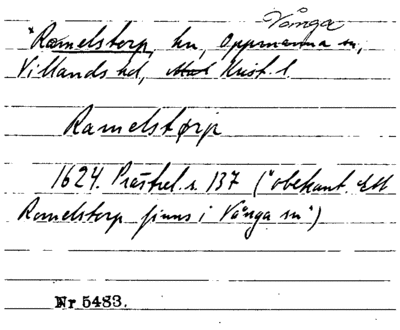 Vånga
*Ramelstorp, hn, Oppmanna sn,
Villands hd, Krist. l.
Ramelstørp
1624. Prästrel. s. 137 ("obekant. Ett
Ramelstorp finns i Vånga sn")
Nr 5483.